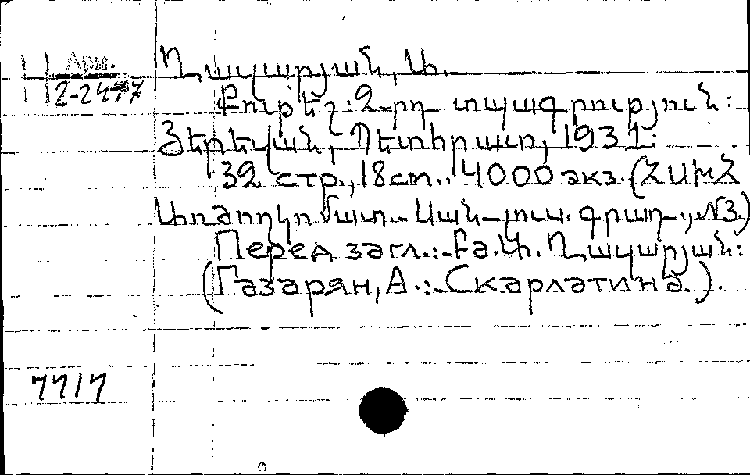 Арм.
2-2477
Ղազարյան, Ա.
Քութեշ: 2-րդ տպագրություն:
Յերեվան, Պետհրատ, 1931:
32 стр., 18 cm., 4000 экз. (ՀՍԽՀ
Առժողկոմատ.- Սան-լուս. գրադ., №3)
Перед загл.: Բժ. Ա. Ղազարյան:
(Газарян, А.: Скарлатина.).
7717